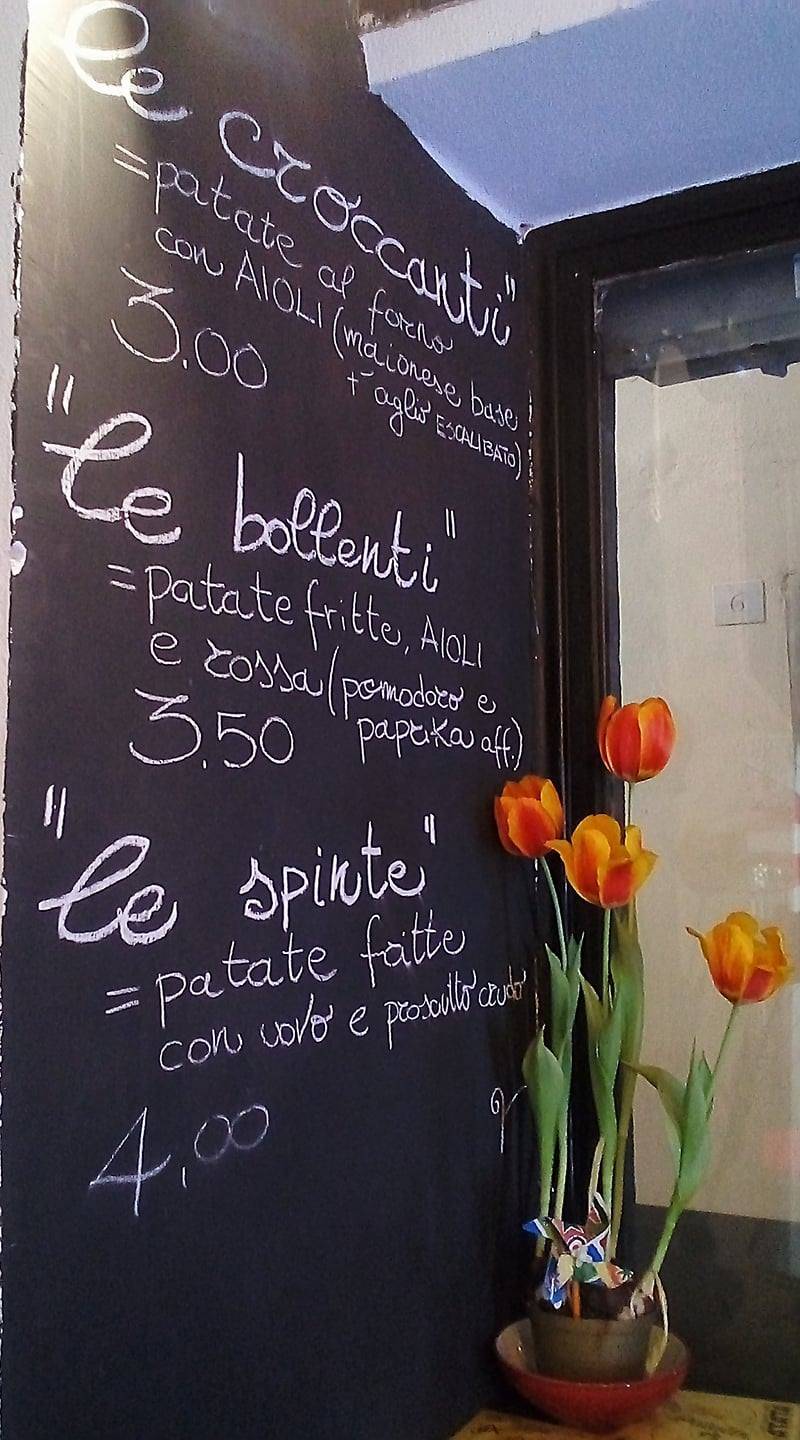 le croccanti"
= patate al forno
con AIOLI (maionese base
+ aglio ESCALIBATO)
3.00
"le bollenti"
= patate fritte, AIOLI
e rossa (pomodoro e
paprika aff.)
3.50
"le spinte"
= patate fritte
con uovo e prosciutto crudo
4,00
6